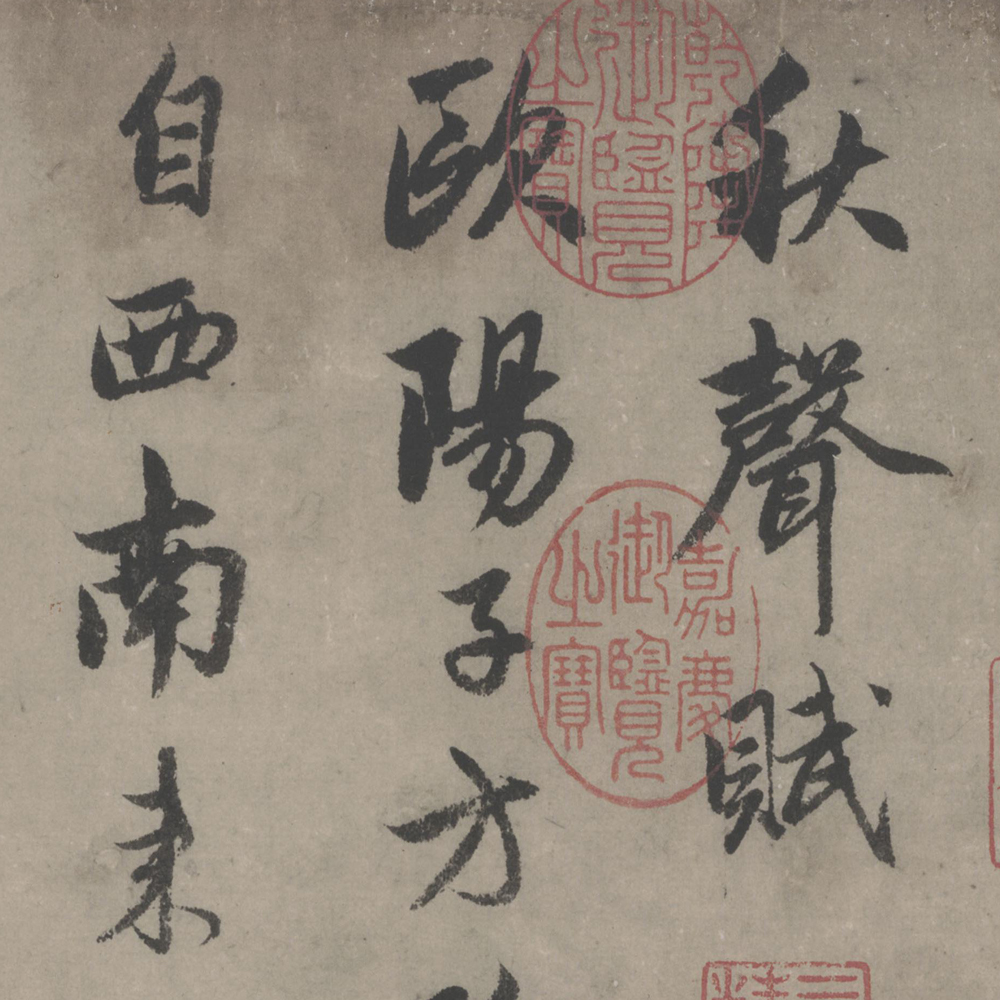 秋聲賦
歐陽子方
自西南来
乾隆御覽之寶
嘉慶御覽之寶